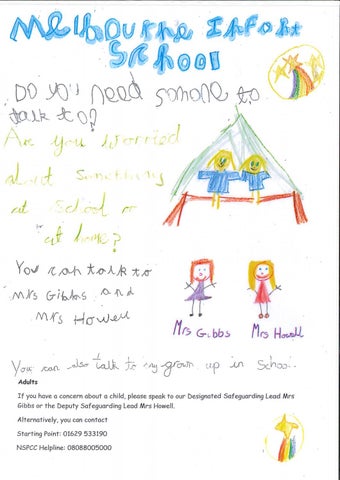 Melbourne Infant
School
Do you need somone to
talk to?
Are you worried
about something
at school or
at home?
You can talk to
mrs Gibbs and
Mrs Howell
Mrs Gibbs Mrs Howell
You can also talk to any grown up in School.
Adults
If you have a concern about a child, please speak to our Designated Safeguarding Lead Mrs
Gibbs or the Deputy Safeguarding Lead Mrs Howell.
Alternatively, you can contact
Starting Point: 01629 533190
NSPCC Helpline: 08088005000